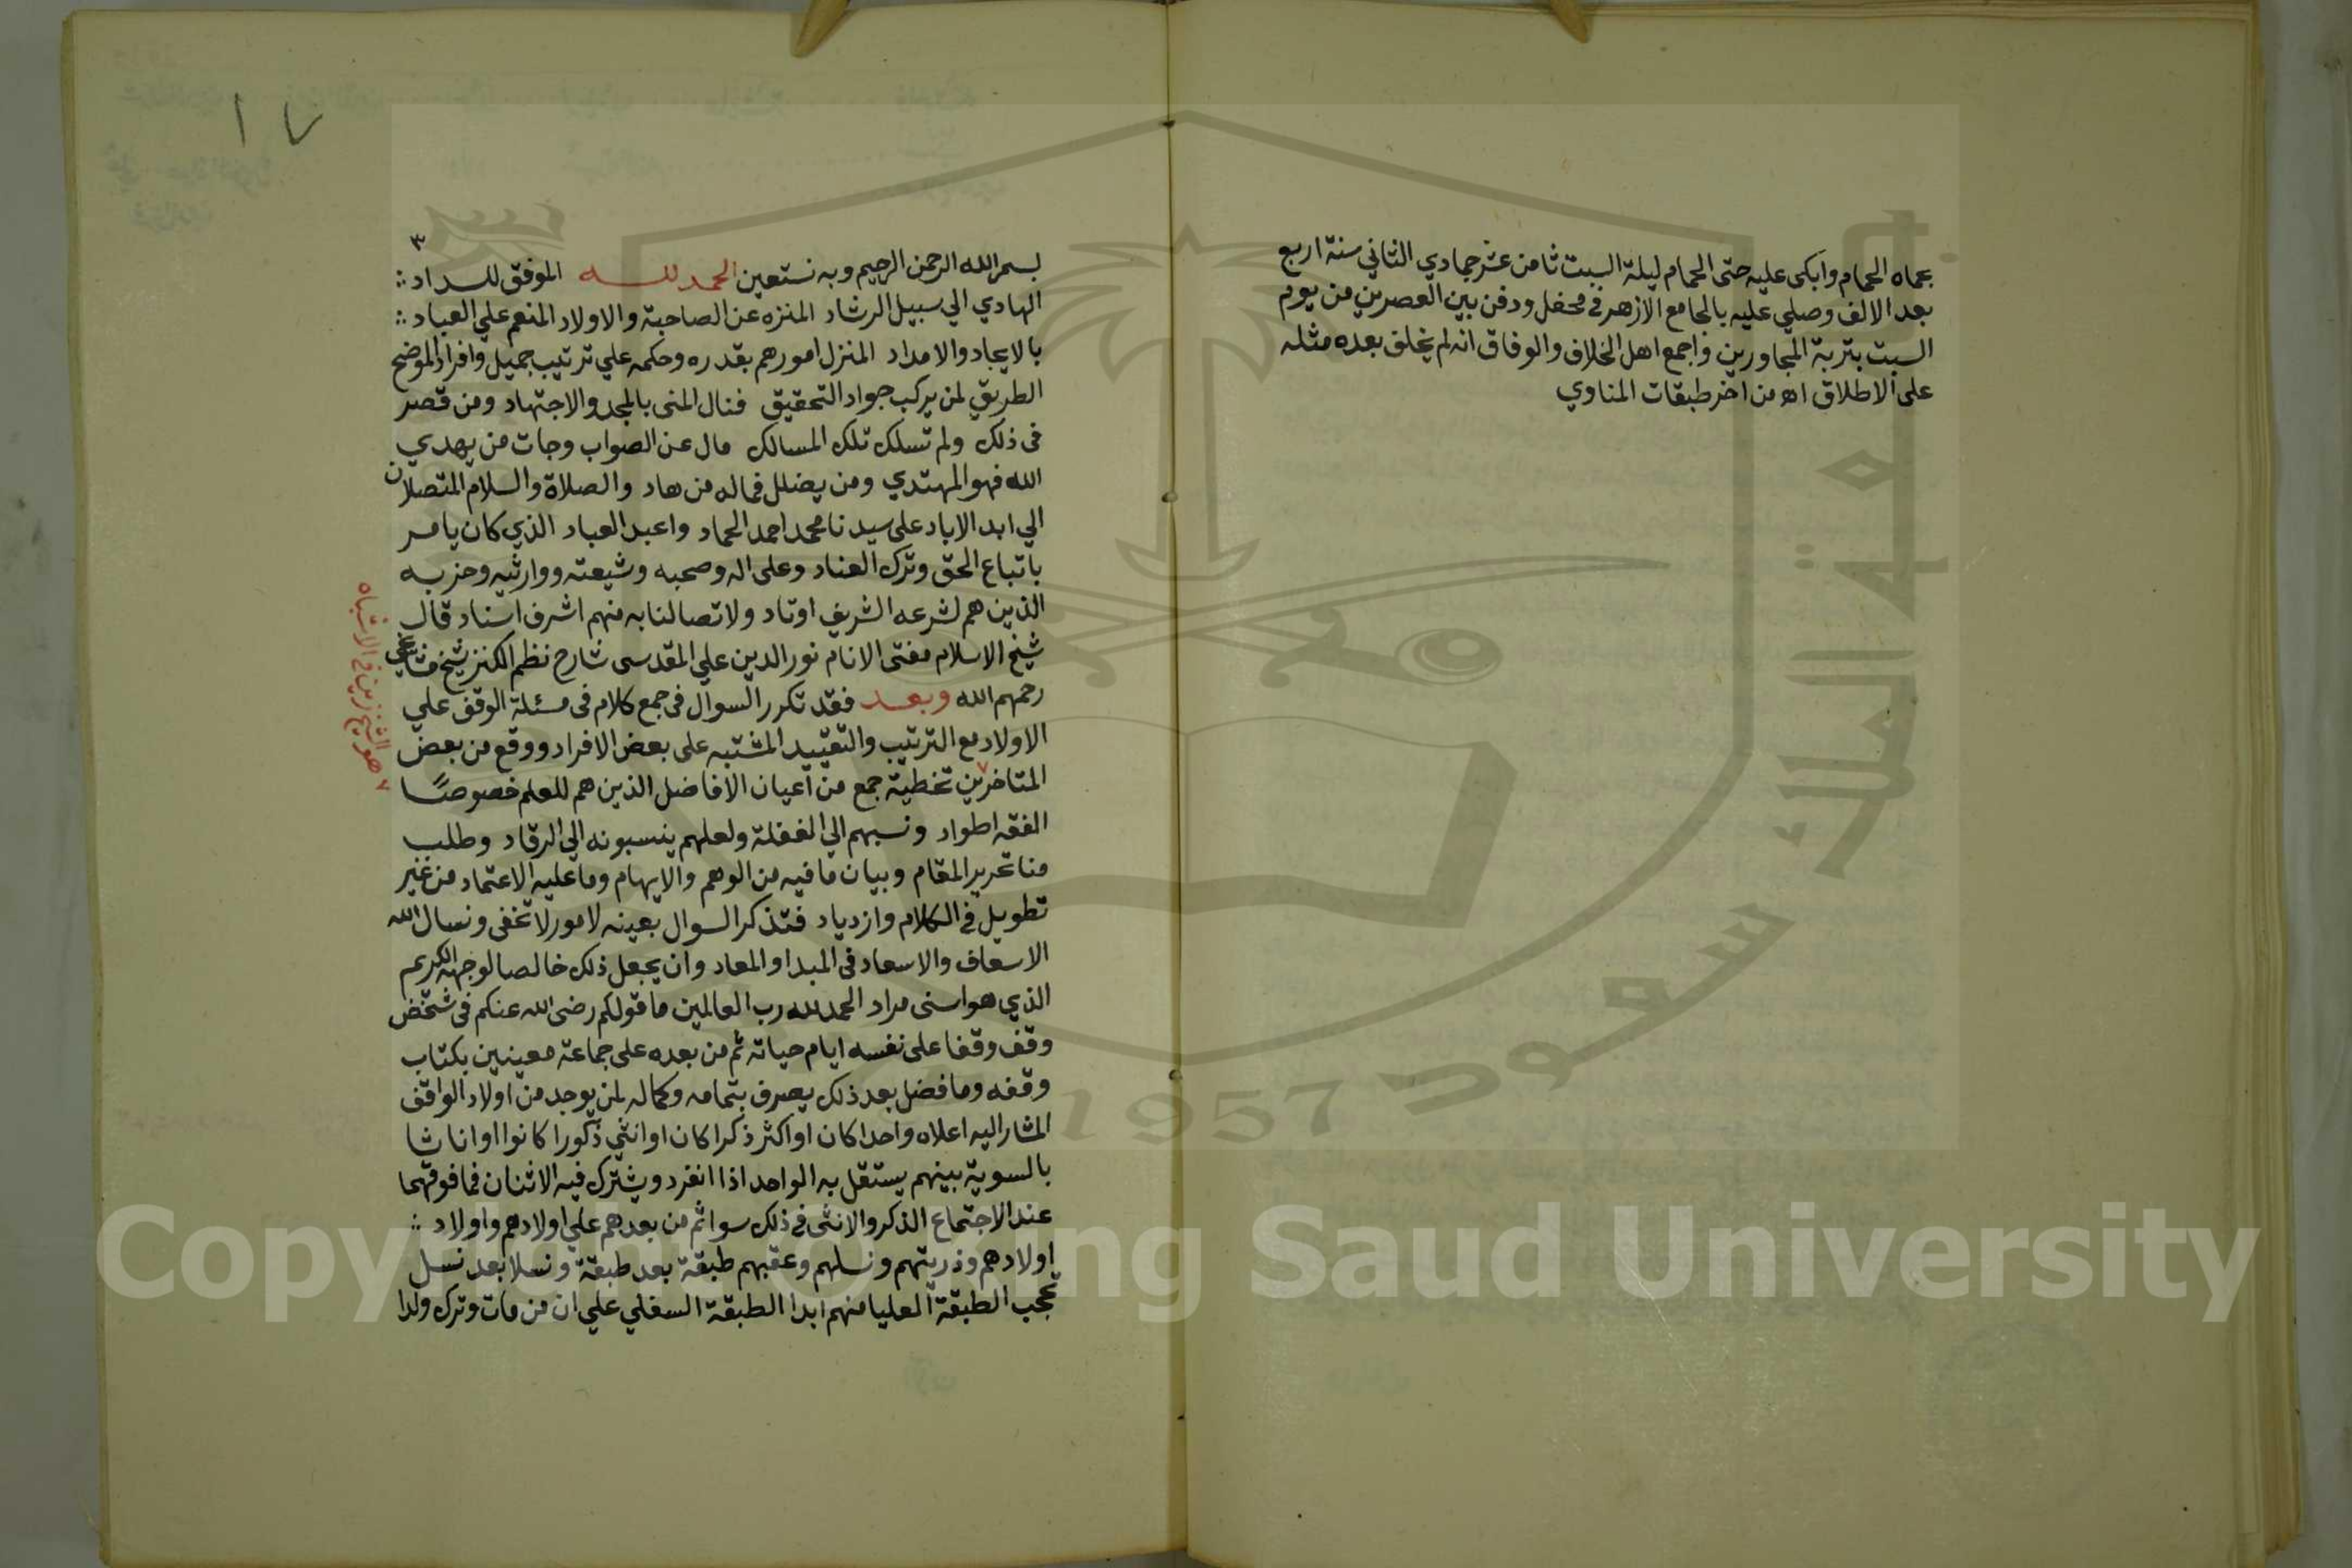 بحماه الحمام وابكى عليه حتى الحمام ليلة السبت ثامن عشر جمادي الثاني سنة اربع
بعد الالف وصلي عليه بالجامع الازهر في محفل ودفن بين العصرين من يوم
السبت بتربة المجاورين واجمع اهل الخلاف والوفاق انه لم يخلق بعده مثله
على الاطلاق اه من اخر طبقات المناوي
١٧
٣
بسم الله الرحمن الرحيم وبه نستعين الحمد لله الموفق للسداد
الهادي الي سبيل الرشاد المنزه عن الصاحبة والاولاد المنعم علي العباد
بالايجاد والامداد المنزل امورهم بقدره وحكمه علي ترتيب جميل وافراد الموضح
الطريق لمن يركب جواد التحقيق فنال المنى بالمجد والاجتهاد ومن قصر
في ذلك ولم تسلك تلك المسالك مال عن الصواب وجات من يهدي
الله فهو المهتدي ومن يضلل فماله من هاد والصلاة والسلام المتصلان
الي ابد الاباد على سيدنا محمد احمد الحماد واعبد العباد الذي كان يامر
باتباع الحق وترك العناد وعلى اله وصحبه وشيعته ووارثيه وحزبه
الذين هم لشرعه الشريف اوتاد ولاتصالنا به منهم اشرف اسناد قال
شيخ الاسلام مفتى الانام نور الدين علي المقدسى شارح نظم الكنز شيخ مشايخي
رحمهم الله وبعد فقد تكرر السوال في جمع كلام في مسئلة الوقف علي
الاولاد مع الترتيب والتقييد المشتبه على بعض الافراد ووقع من بعض
المتاخرين تخطية جمع من اعيان الافاضل الذين هم للعلم خصوصًا
الفقه اطواد ونسبهم الي الغفلة ولعلهم ينسبونه الي الرقاد وطلب
منا تحرير المقام وبيان ما فيه من الوهم والايهام وما عليه الاعتماد من غير
تطويل في الكلام وازدياد فتذكر السوال بعينه لامور لا تخفى ونسال الله
الاسعاف والاسعاد في المبدا والمعاد وان يجعل ذلك خالصا لوجهه الكريم
الذي هو اسنى مراد الحمد لله رب العالمين ما قولكم رضى الله عنكم في شخص
وقف وقفا على نفسه ايام حياته ثم من بعده على جماعة معينين بكتاب
وقفه وما فضل بعد ذلك يصرف بتمامه وكماله لمن يوجد من اولاد الواقف
المشار اليه اعلاه واحدا كان او اكثر ذكرا كان او انثي ذكورا كانوا او اناثا
بالسوية بينهم يستقل به الواحد اذا انفرد ويشترك فيه الاثنان فما فوقهما
عند الاجتماع الذكر والانثى في ذلك سوا ثم من بعدهم علي اولادهم واولاد
اولادهم وذريتهم ونسلهم وعقبهم طبقة بعد طبقة ونسلا بعد نسل
تحجب الطبقة العليا منهم ابدا الطبقة السفلي علي ان من مات وترك ولدا
٧ هو الشيخ زين في الاشباه
1957
Copyright © King Saud University